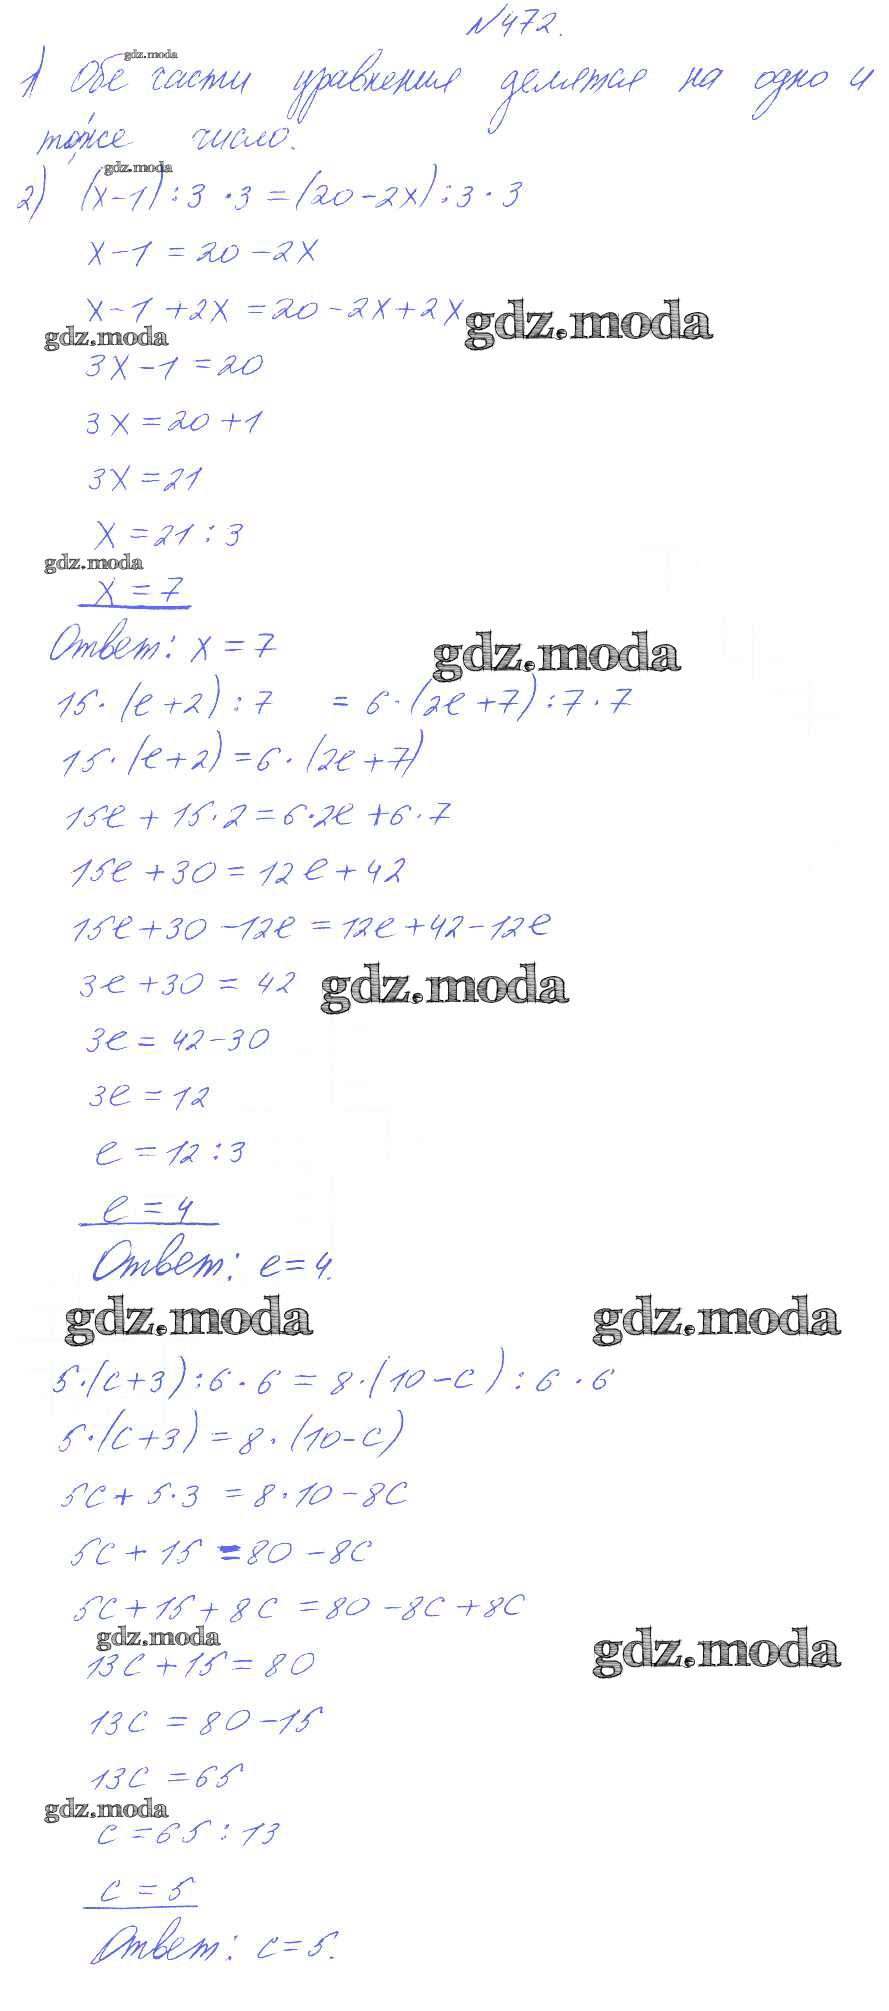 №472.
gdz.moda
1) Обе части уравнения делятся на одно и
тоже число.
gdz.moda
2) (x-1):3·3=(20-2x):3·3
x-1=20-2x
x-1+2x=20-2x+2x
gdz.moda
gdz.moda
3x-1=20
3x=20+1
3x=21
x=21:3
gdz.moda
x=7
Ответ: x=7
gdz.moda
15·(e+2):7 =6·(2e+7):7·7
15·(e+2)=6·(2e+7)
15e+15·2=6·2e+6·7
15e+30=12e+42
15e+30-12e=12e+42-12e
3e+30=42
gdz.moda
3e=42-30
3e=12
e=12:3
e=4
Ответ: e=4.
gdz.moda gdz.moda
5·(c+3):6·6=8·(10-c):6·6
5·(c+3)=8·(10-c)
5c+5·3=8·10-8c
5c+15=80-8c
5c+15+8c=80-8c+8c
gdz.moda
gdz.moda
13c+15=80
13c=80-15
13c=65
gdz.moda
c=65:13
c=5
Ответ: c=5.